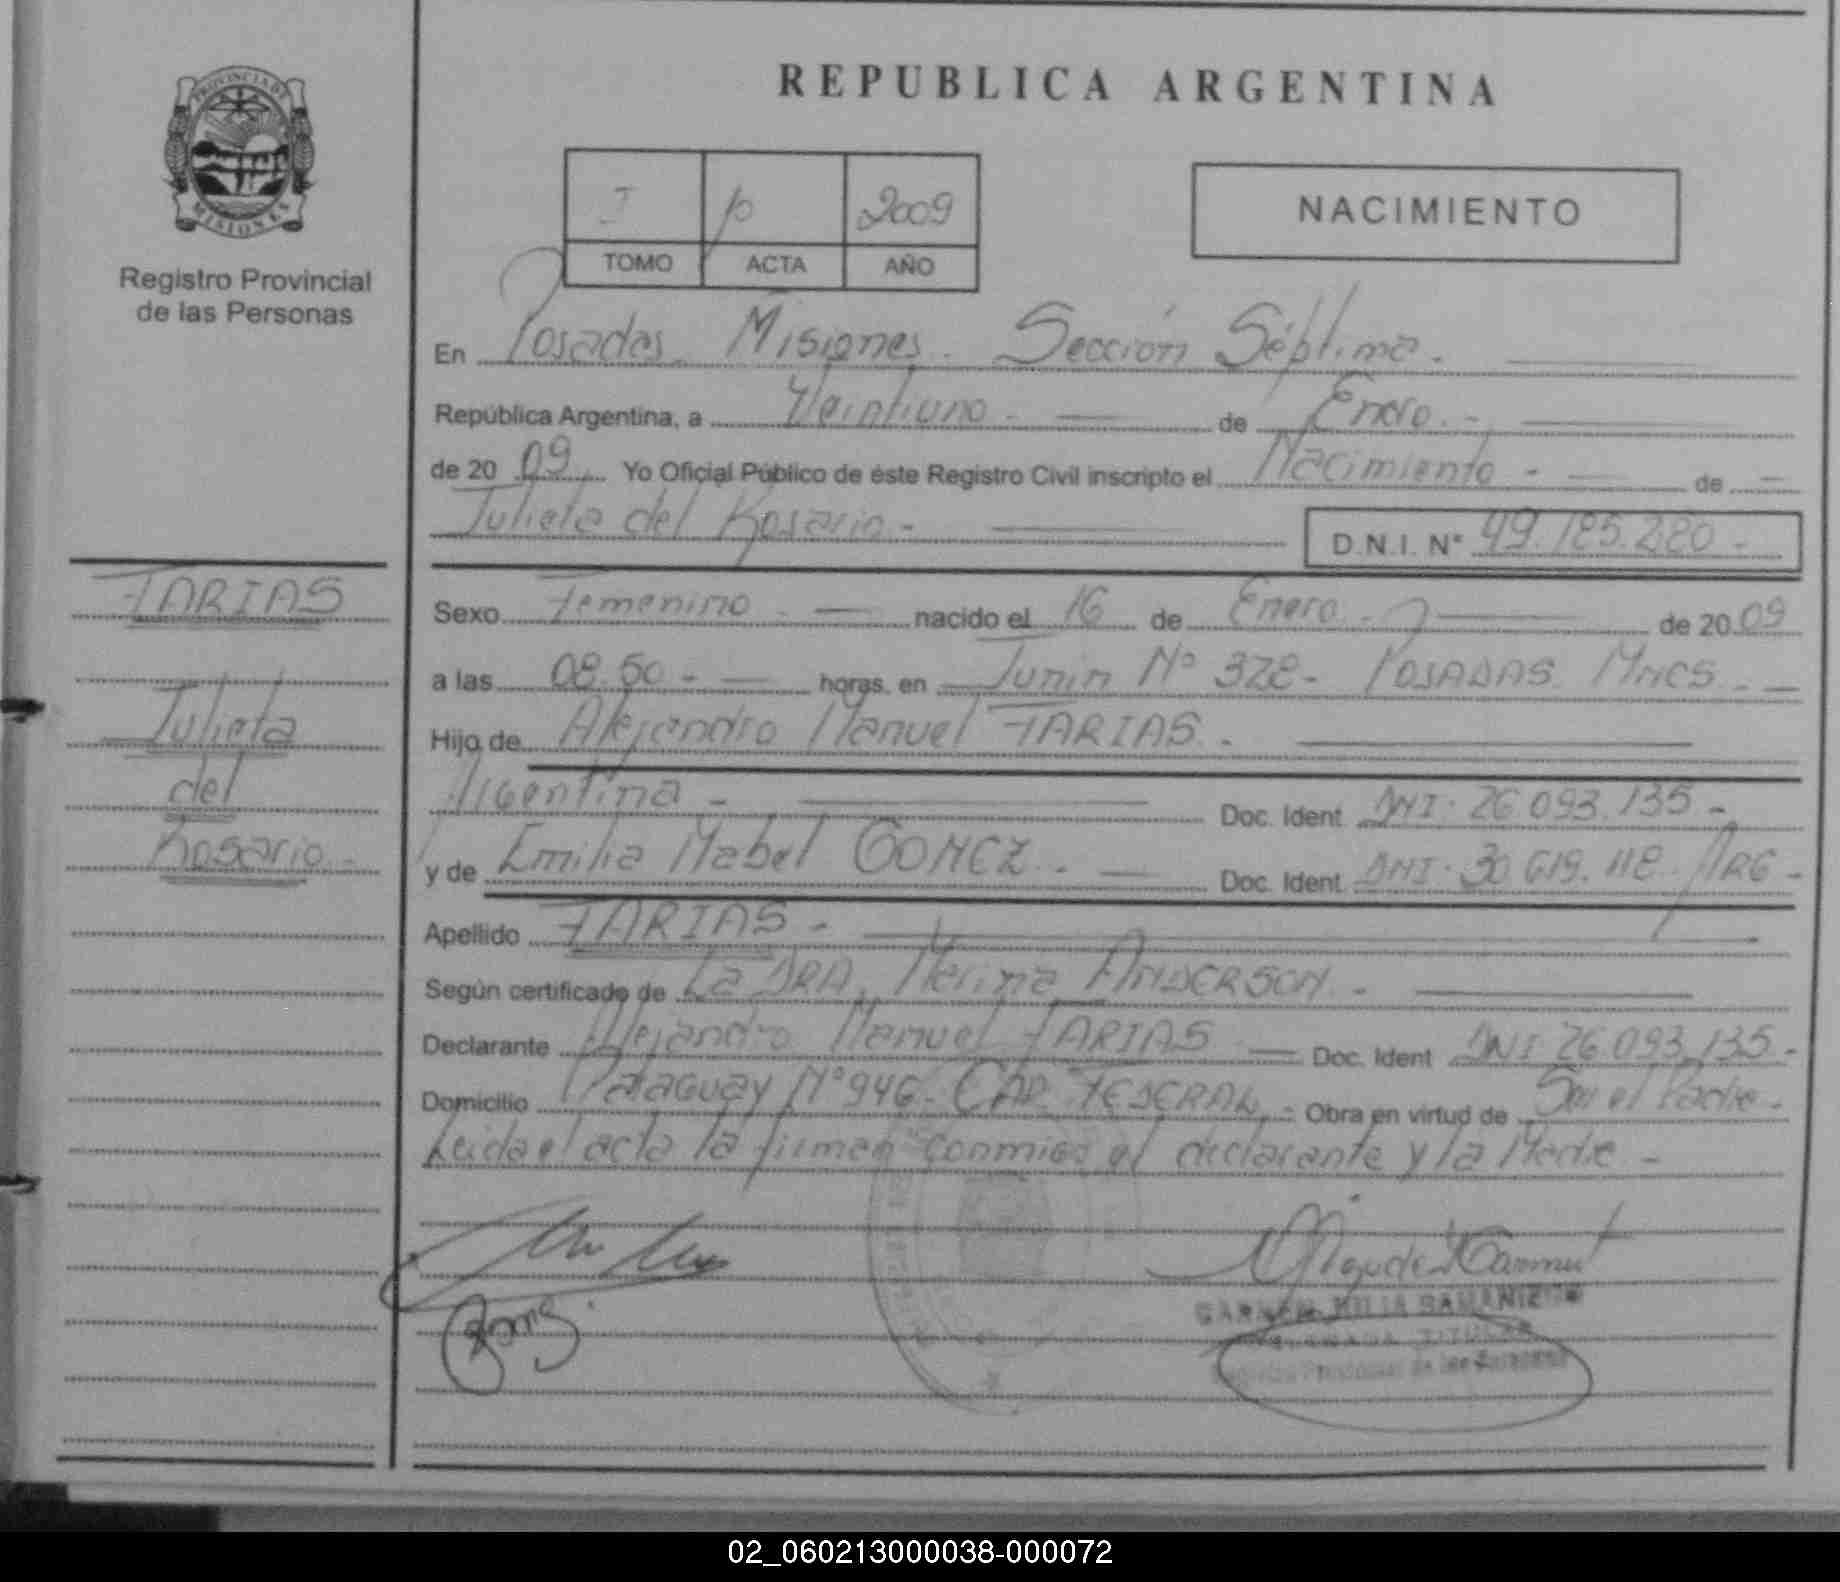 PROVINCIA DE
MISIONES
Registro Provincial
de las Personas
REPUBLICA ARGENTINA
I 10 2009
TOMO ACTA AÑO
NACIMIENTO
En Posadas Misiones. Sección Séptima.
República Argentina, a Veintiuno - de Enero. -
de 20 09 Yo Oficial Público de éste Registro Civil inscripto el Nacimiento - de -
Julieta del Rosario - D.N.I. N° 49.185.280 -
FARIAS
Julieta
del
Rosario -
Sexo Femenino - nacido el 16 de Enero. - de 20 09
a las 08.50 - horas, en Junin N° 328 - POSADAS. MNES. -
Hijo de Alejandro Manuel FARIAS. -
Argentina - Doc. Ident DNI. 26.093.135 -
y de Emilia Mabel GOMEZ. - Doc. Ident DNI. 30.619.118 ARG -
Apellido FARIAS -
Según certificado de La DRA. ANDERSON. -
Declarante Alejandro Manuel FARIAS Doc. Ident DNI 26.093.135 -
Domicilio Paraguay N° 946 - CAP. FEDERAL - Obra en virtud de Ser el Padre -
Leida el acta la firman conmigo el declarante y la Madre -
SAMANIEGO
TITULAR
Registro Provincial de las Personas
02_060213000038-000072